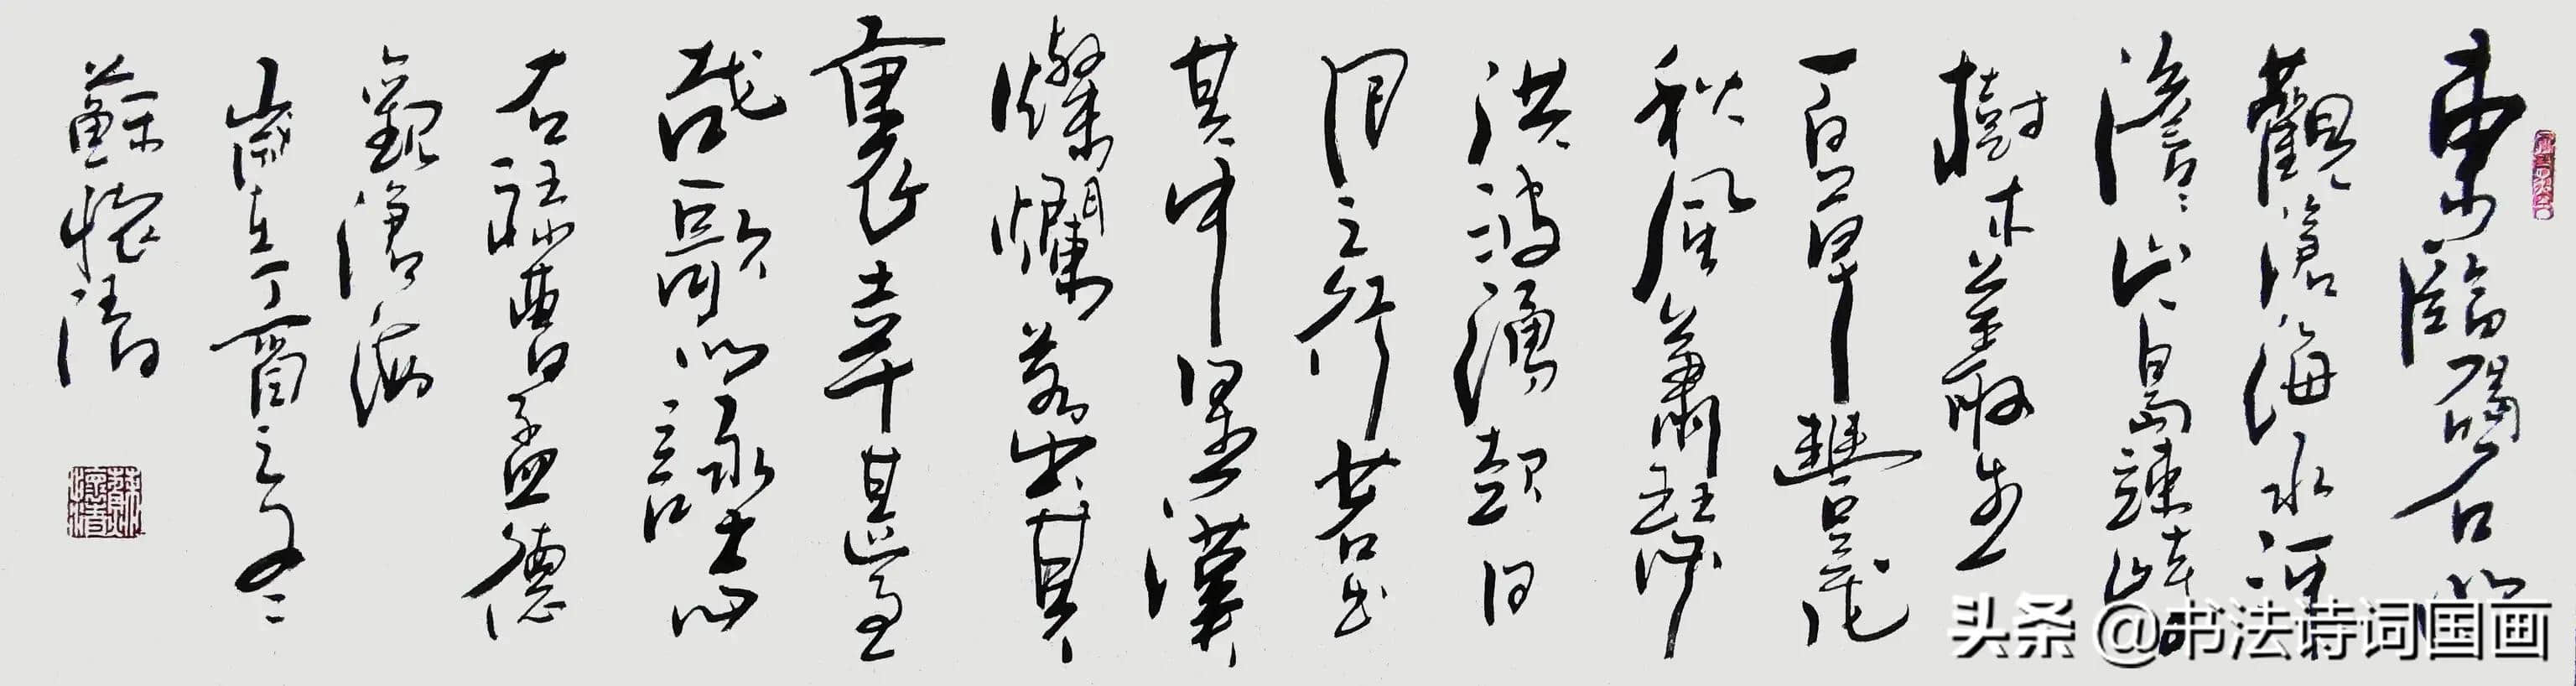 東臨碣石以
觀滄海水何
澹澹山島竦峙
樹木叢生
百草豐茂
秋風蕭瑟
洪波涌起日
月之行若出
其中星漢
燦爛若出其
裏幸甚至
哉歌以詠志
右録曹孟德
觀滄海
歲在丁酉之冬
蘇懷清
蘇懷清
头条 @书法诗词国画